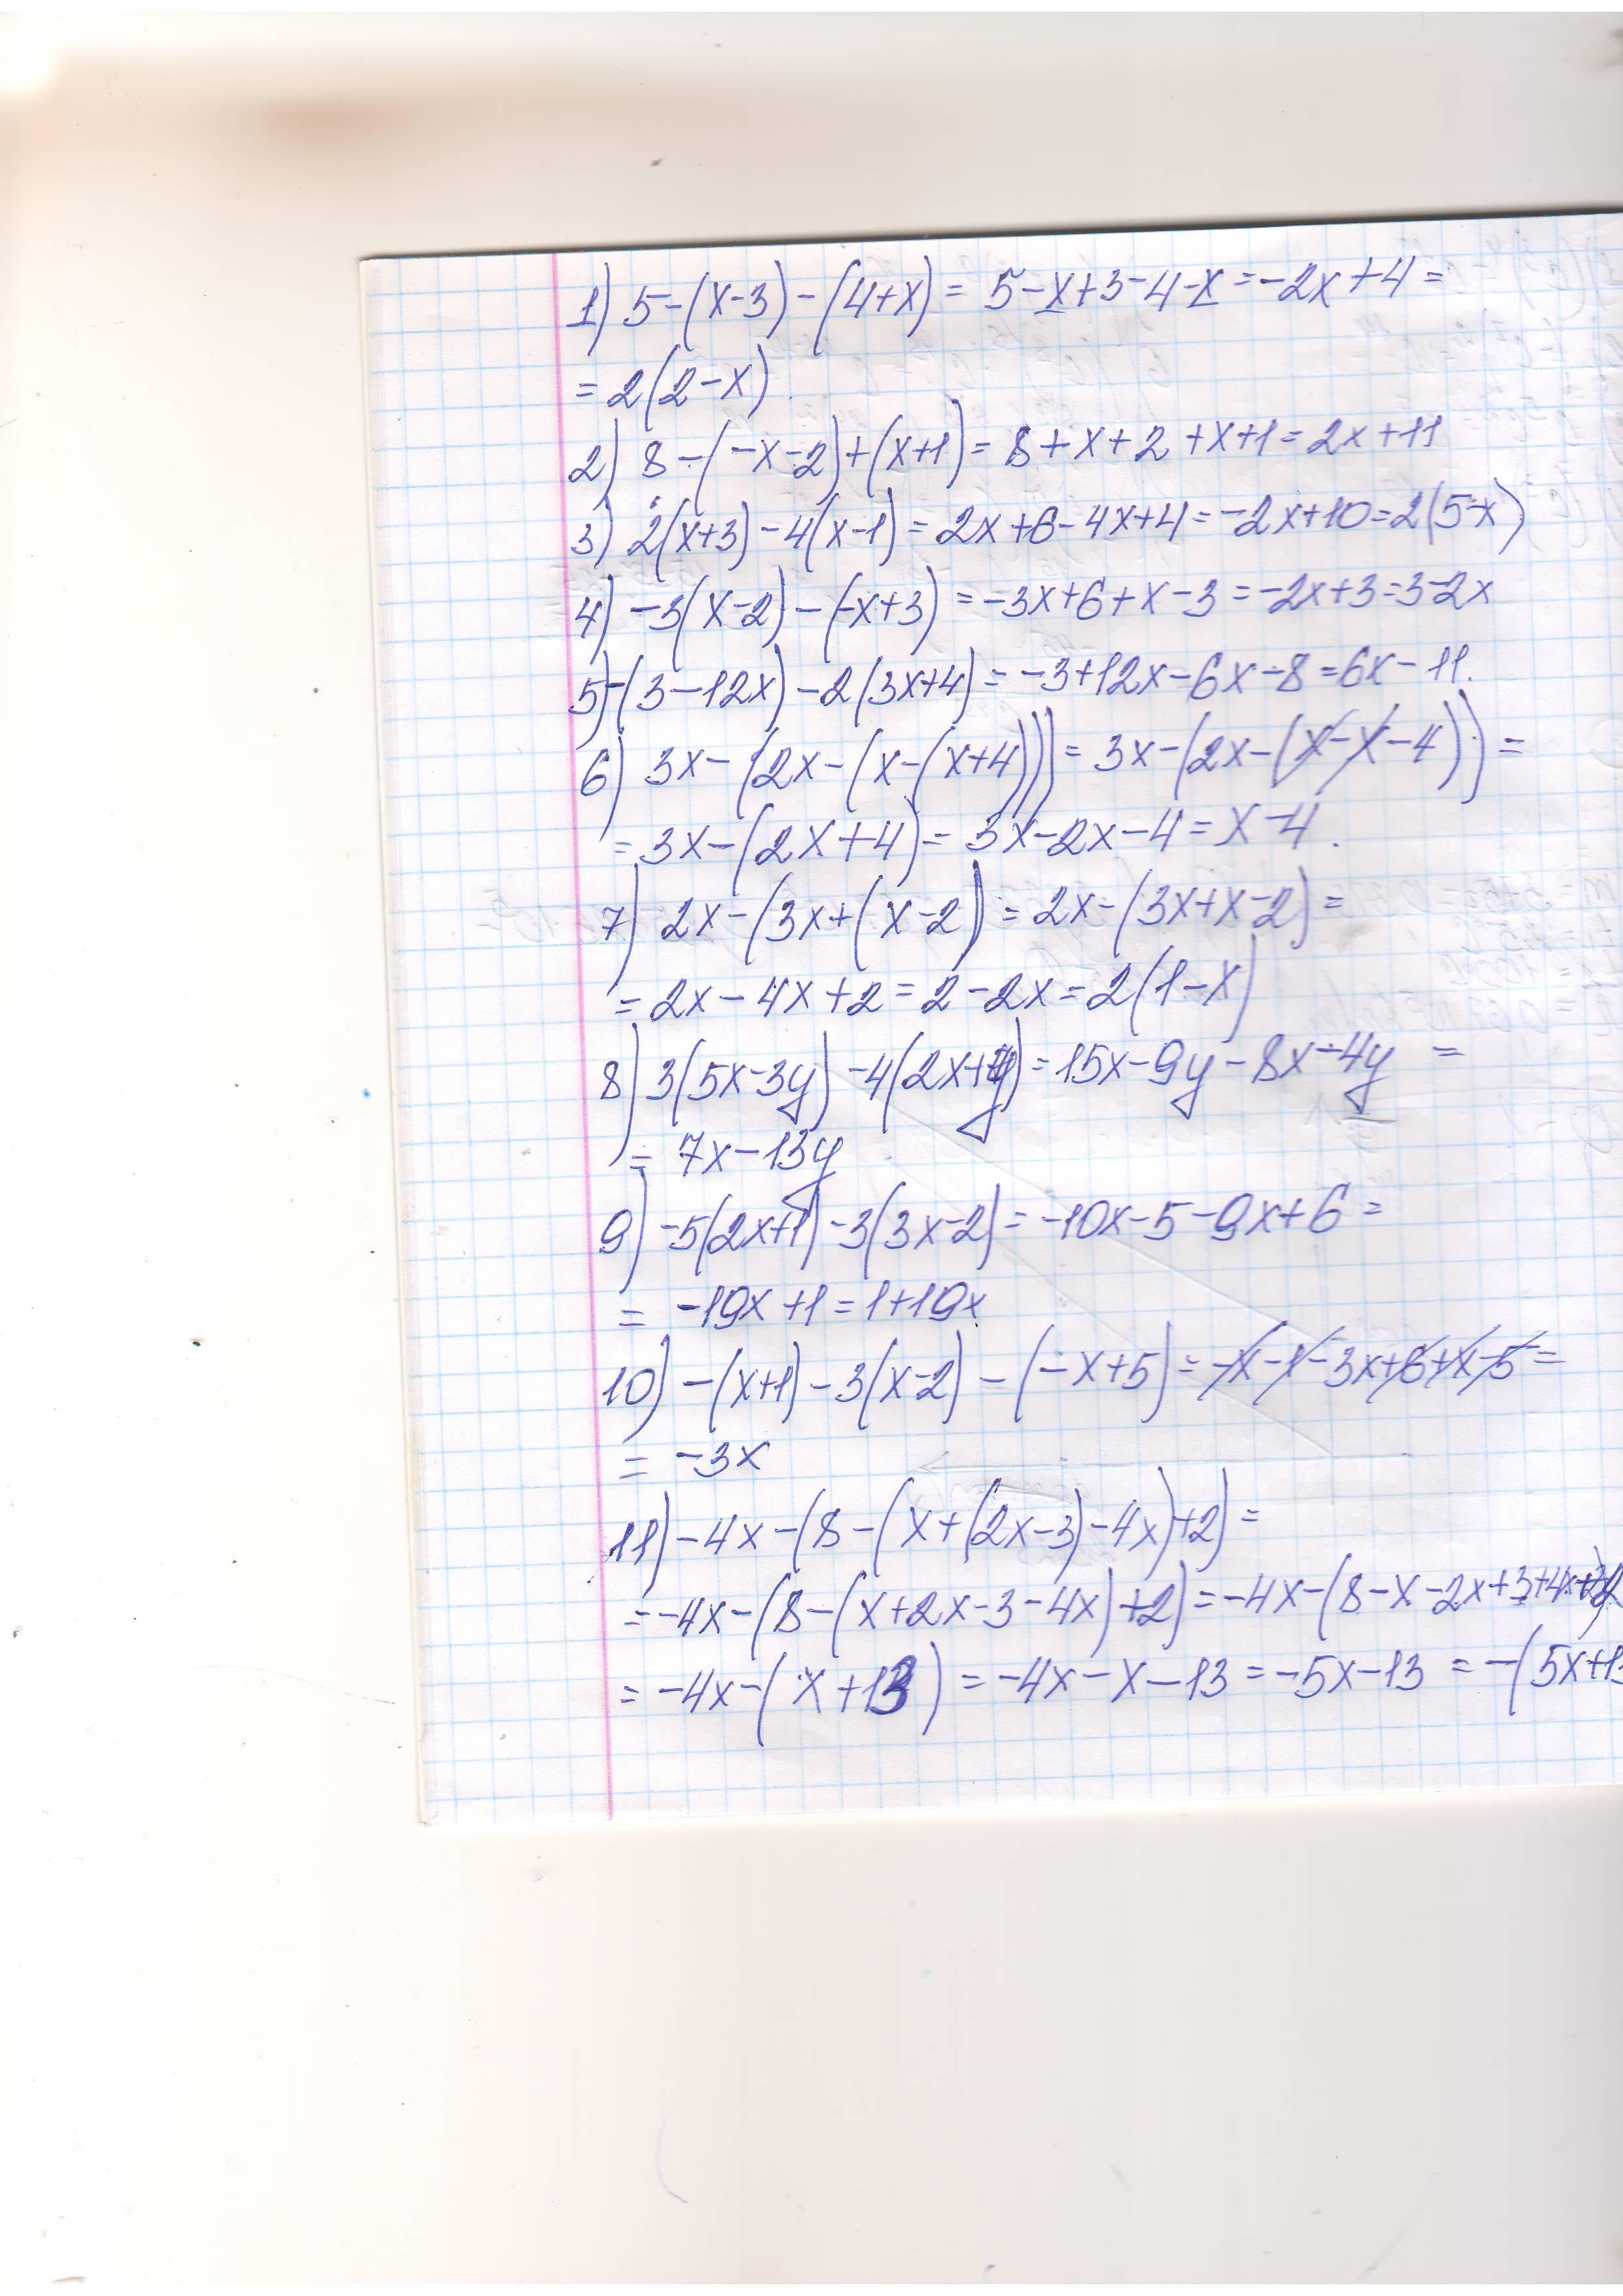 1) 5-(x-3)-(4+x)= 5-x+3-4-x=-2x+4=
=2(2-x)
2) 8-(-x-2)+(x+1)=8+x+2+x+1=2x+11
3) 2(x+3)-4(x-1)=2x+6-4x+4=-2x+10=2(5-x)
4) -3(x-2)-(-x+3)=-3x+6+x-3=-2x+3=3-2x
5) -(3-12x)-2(3x+4)=-3+12x-6x-8=6x-11.
6) 3x-(2x-(x-(x+4)))=3x-(2x-(x-x-4))=
=3x-(2x+4)=3x-2x-4=x-4.
7) 2x-(3x+(x-2))=2x-(3x+x-2)=
=2x-4x+2=2-2x=2(1-x)
8) 3(5x-3y)-4(2x+y)=15x-9y-8x-4y=
=7x-13y
9) -5(2x+1)-3(3x-2)=-10x-5-9x+6=
=-19x+1=1+19x
10) -(x+1)-3(x-2)-(-x+5)=-x-1-3x+6+x-5=
=-3x
11) -4x-(8-(x+(2x-3)-4x)+2)=
=-4x-(8-(x+2x-3-4x)+2)=-4x-(8-x-2x+3+4x+2)
=-4x-(x+13)=-4x-x-13=-5x-13=-(5x+13